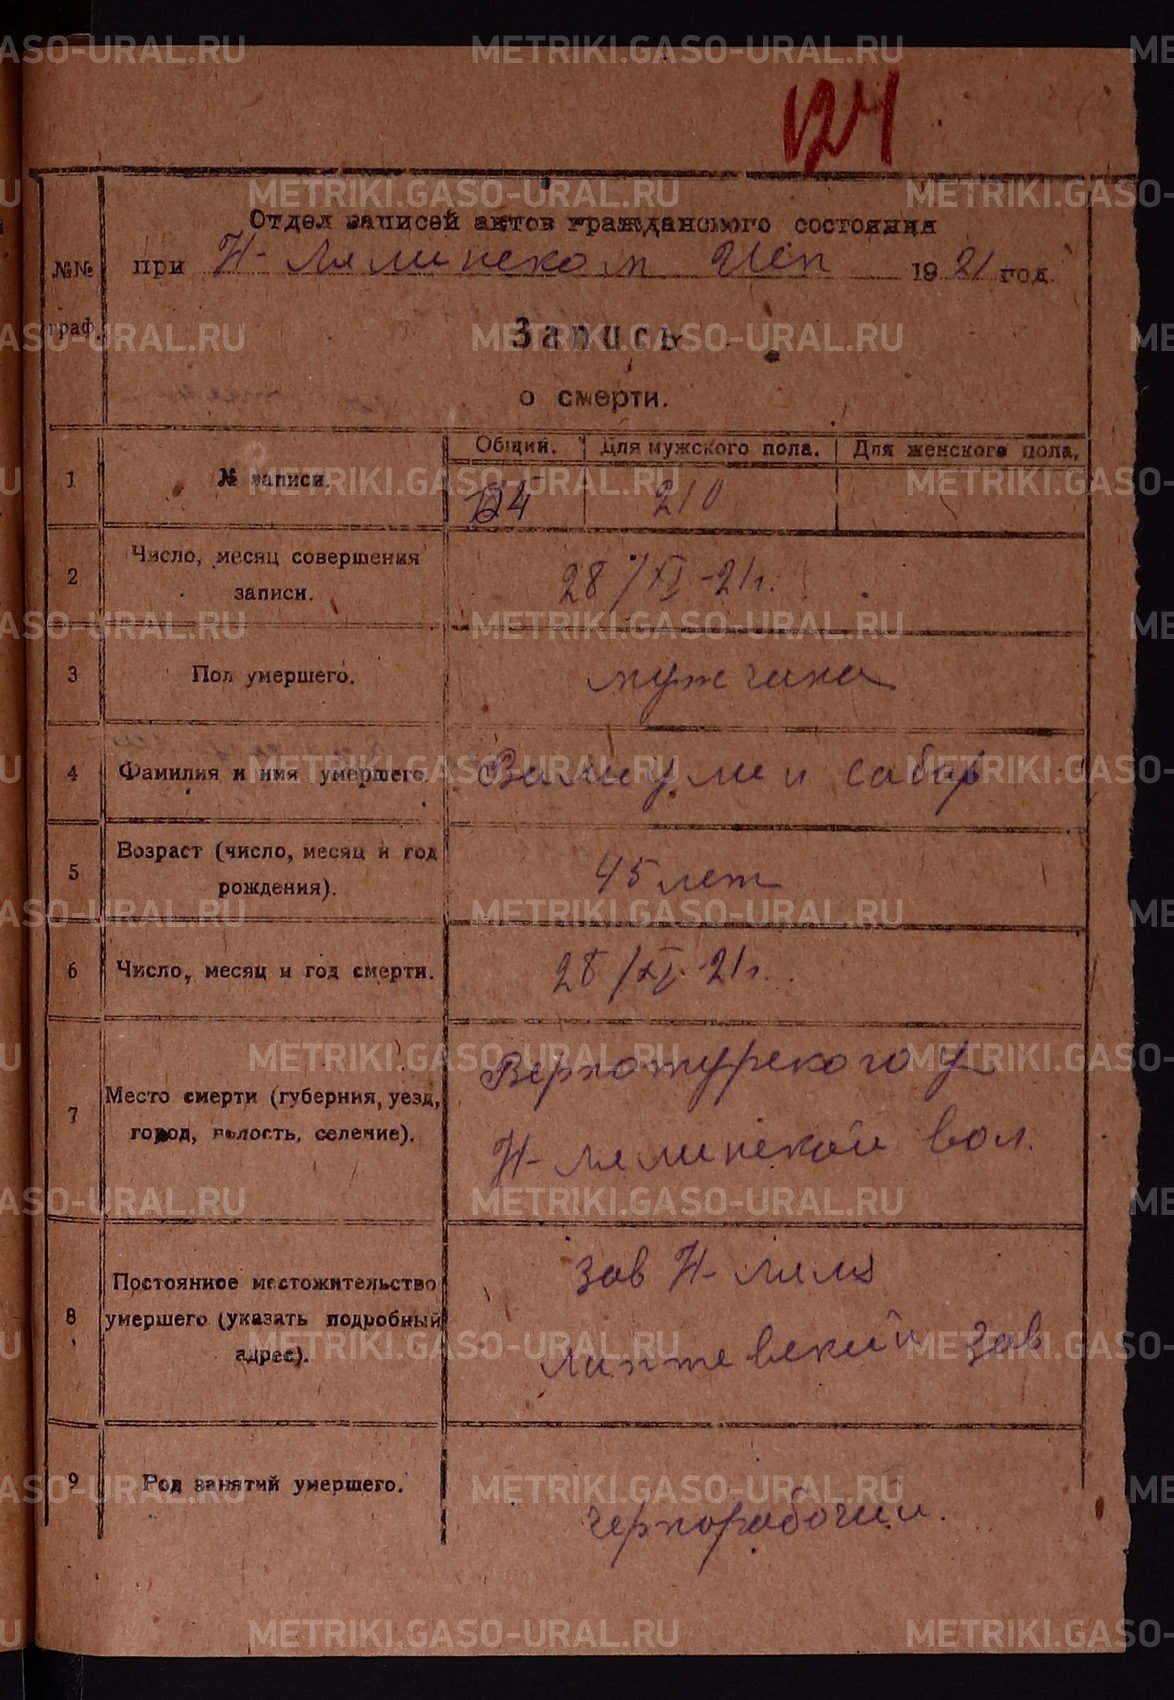 124
Отдел записей актов гражданского состояния
№№ граф.
при Н-Лялинском Исп 1921 год.
Запись
о смерти.
Общий. Для мужского пола. Для женского пола.
1 № записи. 210
2 Число, месяц совершения записи. 28/XI-21г.
3 Пол умершего. мужчина
4 Фамилия и имя умершего. сабир
5 Возраст (число, месяц и год рождения). 45 лет
6 Число, месяц и год смерти. 28/XI-21г.
7 Место смерти (губерния, уезд, город, волость, селение). Верхотурского у
Н-Лялинской вол.
8 Постоянное местожительство умершего (указать подробный адрес). зав Н-Ляля
зав
9 Род занятий умершего. чернорабочий.
METRIKI.GASO-URAL.RU